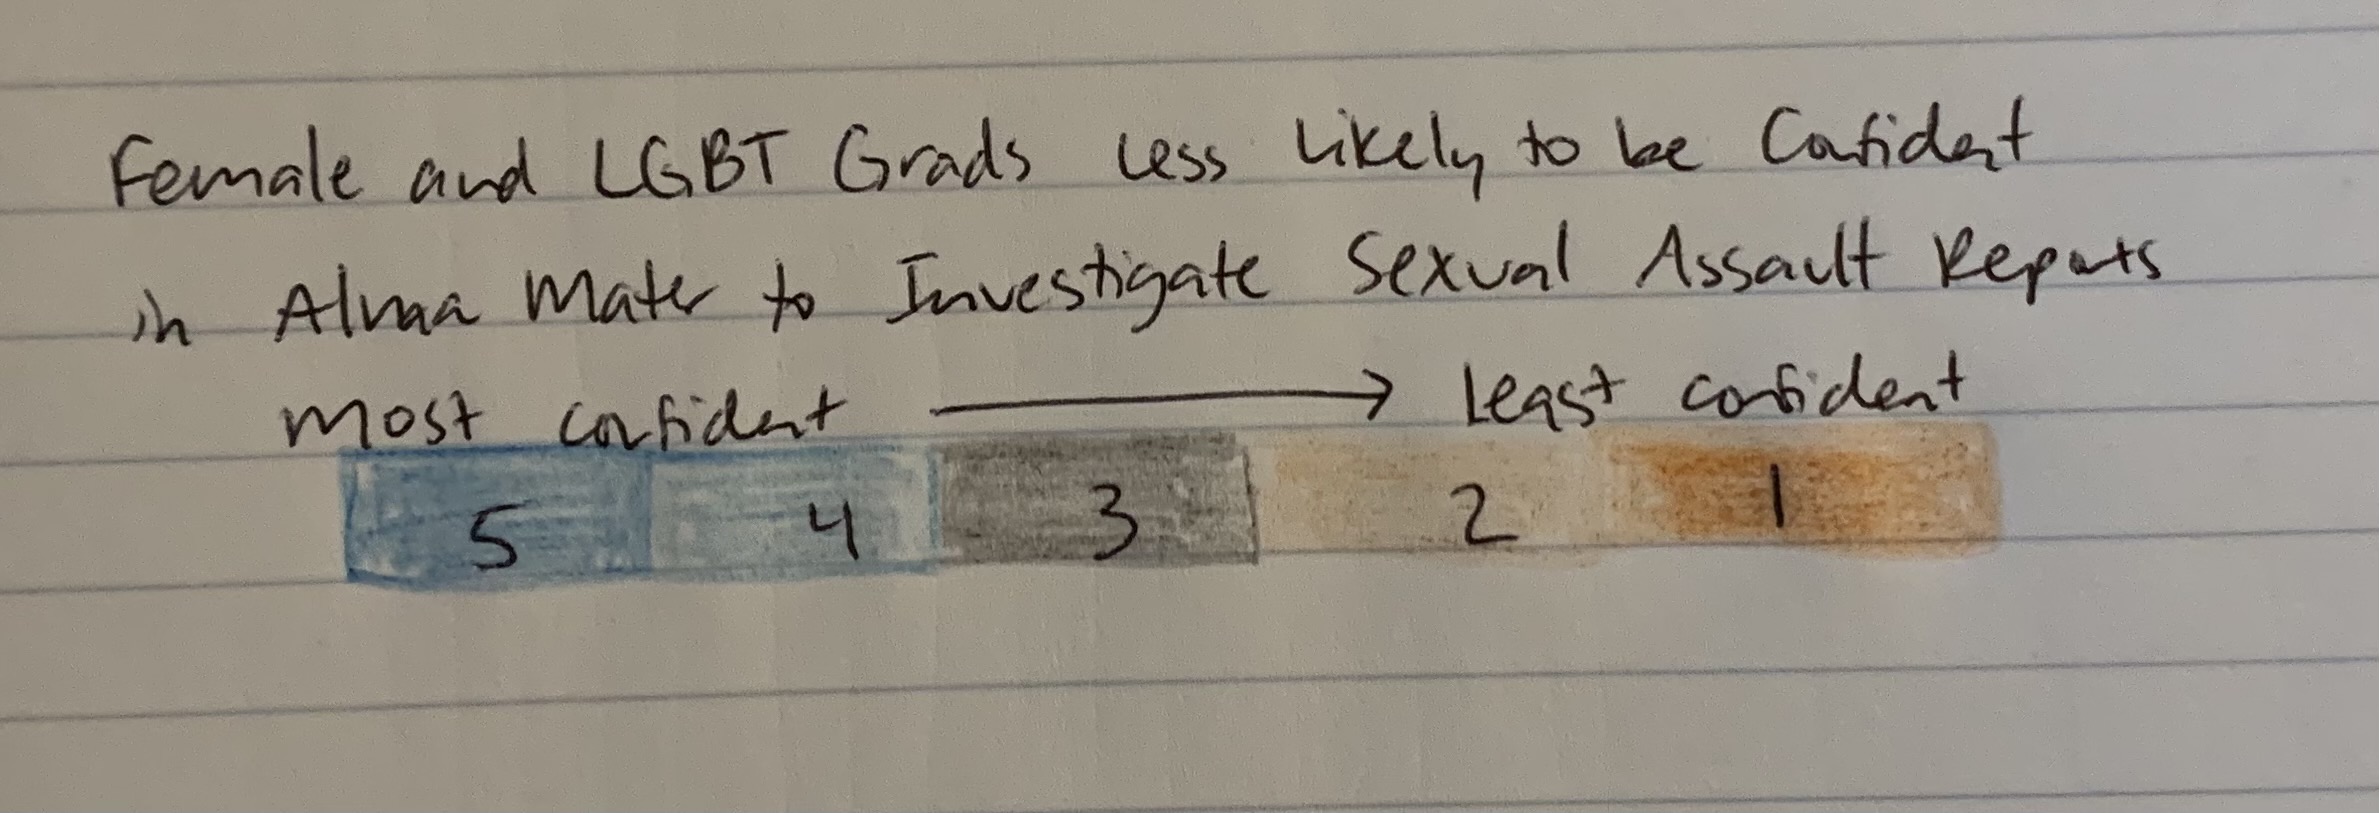 Female and LGBT Grads Less Likely to be Confident
in Alma Mater to Investigate Sexual Assault Reports
most confident → Least confident
5 4 3 2 1